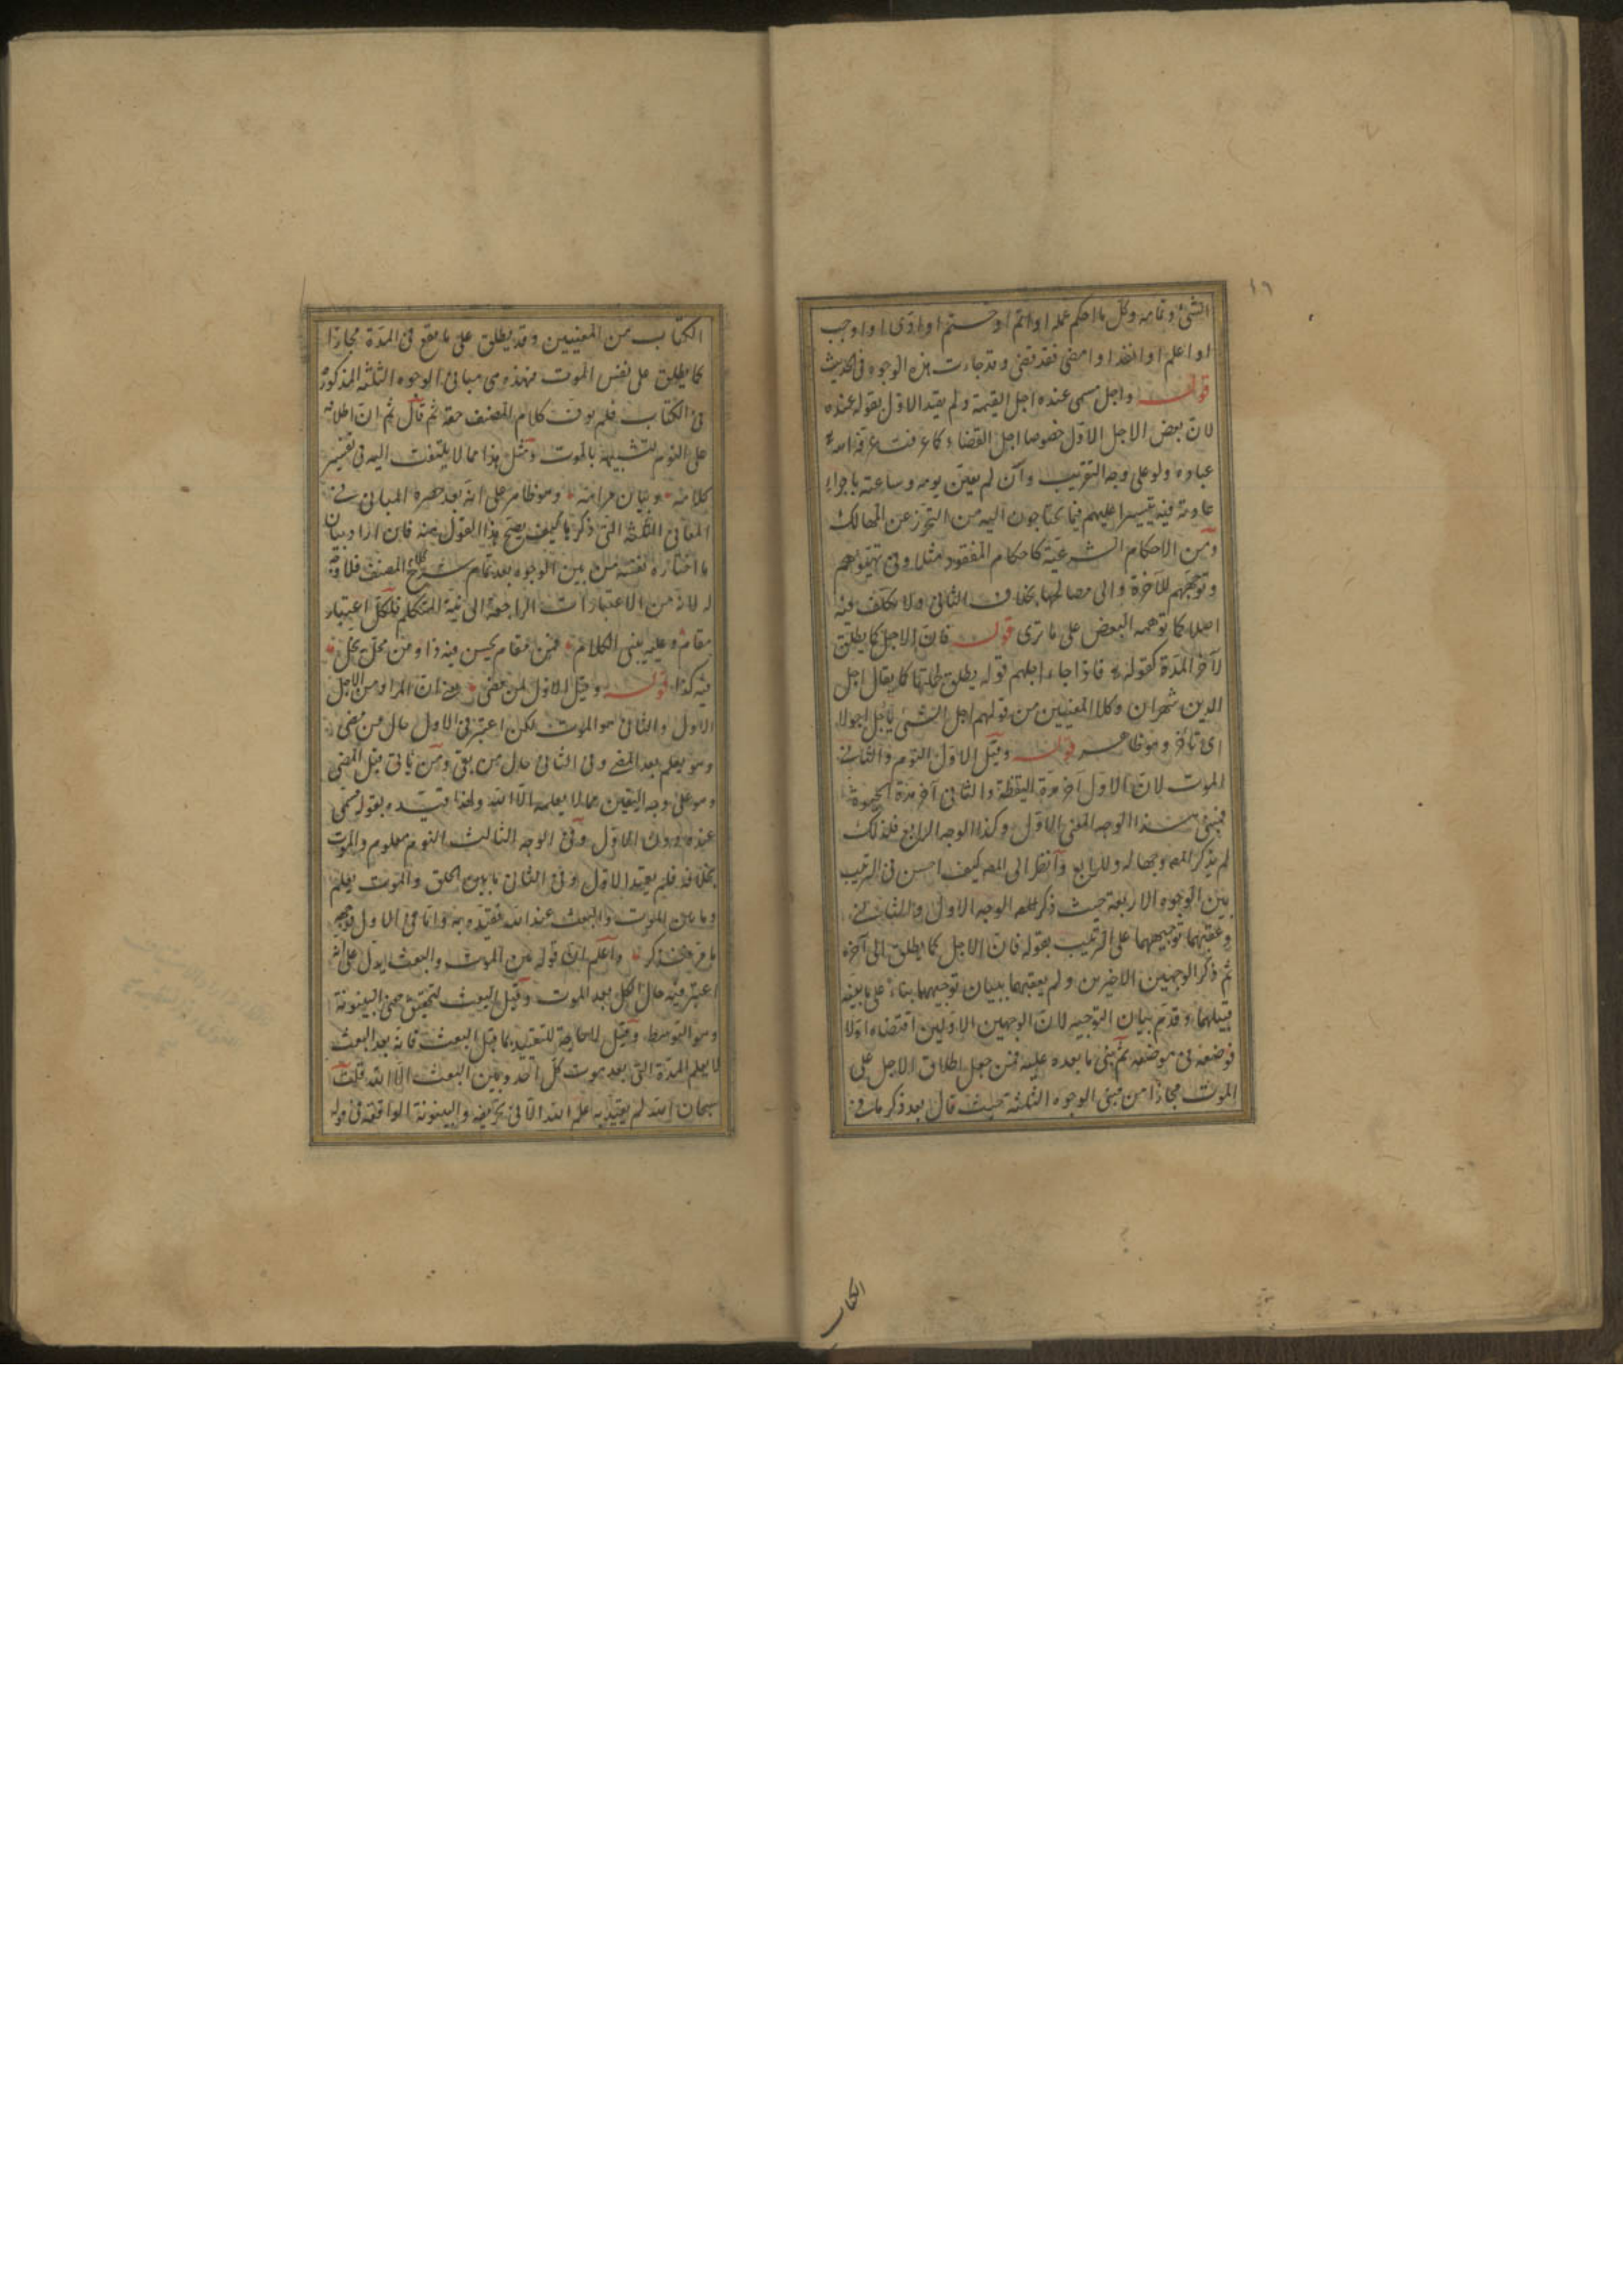 ١٦
الشئ وتمامه وكل ما احكم عمله او اتم او ختم او ادى او اوجب
او اعلم او انفذ او امضى فقد قضى وقد جاءت هذه الوجوه فى الحديث
قوله واجل مسمى عنده اجل القيمة ولم يقيد الاول بقوله عنده
لان بعض الاجل الاول خصوصا اجل القضاء كما عرفت عرفه الله
عباده ولو على وجه التقريب وان لم يعين يومه وساعته باجراء
عادته فيه تيسيرا عليهم فيما يحتاجون اليه من التحرز عن المهالك
ومن الاحكام الشرعية كاحكام المفقود مثلا وفى تهيئوهم
وتوجههم للآخرة والى مصالحها بخلاف الثانى ولا تكلف فيه
اصلا كما توهمه البعض على ما ترى قوله فان الاجل كما يطلق
لآخر المدة كقوله فاذا جاء اجلهم قوله يطلق لجملتها كما يقال اجل
الدين شهران وكلا المعنيين من قولهم اجل الشئ يأجل اجولا
اى تأخر وهو ظاهر قوله وقيل الاول النوم والثانى
الموت لان الاول آخر مدة اليقظة والثانى آخر مدة الحيوة
فمبنى هذا الوجه المعنى الاول وكذا الوجه الرابع فلذلك
لم يذكر المص وجها له وللرابع وانظر الى المص كيف احسن فى الترتيب
بين الوجوه الاربعة حيث ذكر المص الوجه الاول والثانى
وعقبهما توجيههما على الترتيب بقوله فان الاجل كما يطلق الى آخره
ثم ذكر الوجهين الاخيرين ولم يعقبهما ببيان توجيههما بناء على ما بينه
قبيلهما وقدم بيان التوجيه لان الوجهين الاولين اقتضاه اولا
فوضعه فى موضعه ثم بنى ما بعده عليه فمن جعل اطلاق الاجل على
الموت مجازا من مبنى الوجوه الثلثة حيث قال بعد ذكر ما فى
الكتاب
الكتاب من المعنيين وقد يطلق على ما يقع فى المدة مجازا
كما يطلق على نفس الموت فهذه هى مبانى الوجوه الثلثة المذكورة
فى الكتاب فلم يوف كلام المصنف حقه ثم قال ثم ان اطلاقه
على النوم لتشبيهه بالموت ومثل هذا مما لا يلتفت اليه فى تفسير
كلامه وبيان مرامه وهو ظاهر على انه بعد حصره المبانى فى
المعانى الثلثة التى ذكرها كيف يصح هذا القول منه فان اراد بيان
ما اختاره نفسه من بين الوجوه بعد تمام شرح كلام المصنف فلا وجه
له لانه من الاعتبارات الراجعة الى نية المتكلم فلكل اعتبار
مقام وعليه يبنى الكلام فمن مقام يحسن فيه ذا ومن محل يحل
فيه كذا قوله وقيل الاول لمن مضى يعنى ان المراد من الاجل
الاول والثانى هو الموت لكن اعتبر فى الاول حال من مضى
وهو يعلم بعد المضى وفى الثانى حال من بقى ومن يأتى قبل المضى
وهو على وجه اليقين مما لا يعلمه الا الله ولهذا قيده بقوله مسمى
عنده دون الاول وفى الوجه الثالث النوم معلوم والموت
بخلافه فلم يقيد الاول وفى الثانى ما بين الخلق والموت يعلم
وما بين الموت والبعث عند الله فقيده به واما فى الاول فوجهه
ما عرفت فذكر واعلم ان قوله من الموت والبعث يدل على انه
اعتبر فيه حال الكل بعد الموت وقبل البعث لتحقق معنى البينونة
وهو التوسط وقيل لا حاجة للتقييد بما قبل البعث فانه بعد البعث
لا يعلم المدة التى بعد موت كل احد وبين البعث الا الله قلت
سبحان الله لم يقيد به علم الله الا فى تحريفه والبينونة الواقعة فى قوله